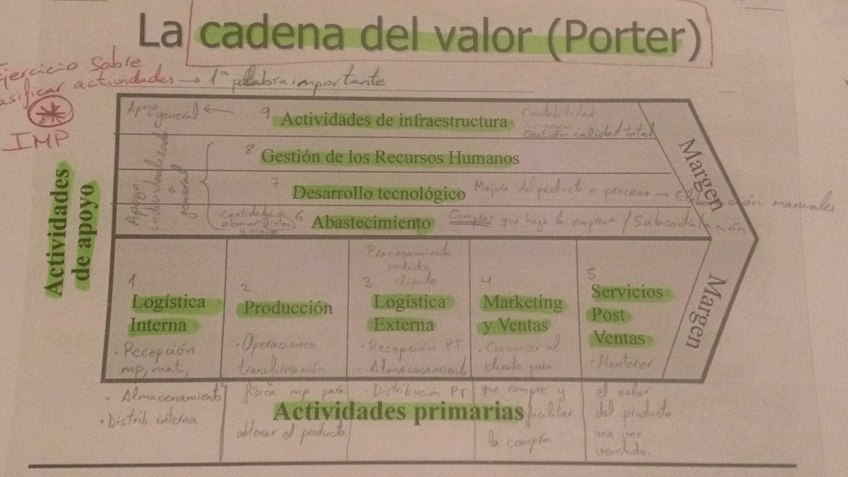 La cadena del valor (Porter)
Ejercicio sobre
clasificar actividades → 1ª palabra importante
IMP
Actividades
de apoyo
Apoyo
general ←
9 Actividades de infraestructura
Contabilidad
Gestión calidad total
Apoyo
individualizado
o
general
8 Gestión de los Recursos Humanos
7 Desarrollo tecnológico Mejora del producto o proceso → Elaboración manuales
6 Abastecimiento Compras que haga la empresa / Subcontratación
Margen
Margen
1
Logística
Interna
• Recepción
mp, mat,
• Almacenamiento
• Distrib interna
2
Producción
• Operaciones
transformación
física mp para
obtener el producto
Procesamiento
pedido
cliente
3
Logística
Externa
• Recepción PT
• Almacenamient
• Distribución PT
4
Marketing
y Ventas
• Convencer al
cliente para
que compre y
facilitar
la compra
5
Servicios
Post
Ventas
• Mantener
el valor
del producto
una vez
vendido.
Actividades primarias